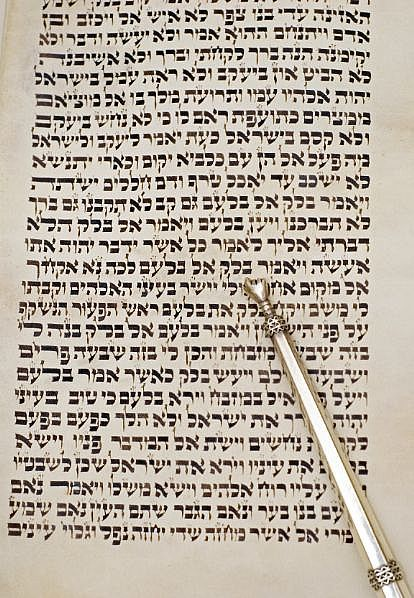 האזינה עדי בנו צפר לא איש אל ויכזב ובן
אדם ויתנחם ההוא אמר ולא יעשה ודבר ולא
יקימנה הנה ברך לקחתי וברך ולא אשיבנה
לא הביט און ביעקב ולא ראה עמל בישראל
יהוה אלהיו עמו ותרועת מלך בו אל מוציאם
ממצרים כתועפת ראם לו כי לא נחש ביעקב
ולא קסם בישראל כעת יאמר ליעקב ולישראל
מה פעל אל הן עם כלביא יקום וכארי יתנשא
לא ישכב עד יאכל טרף ודם חללים ישתה
ויאמר בלק אל בלעם גם קב לא תקבנו גם ברך
לא תברכנו ויען בלעם ויאמר אל בלק הלא
דברתי אליך לאמר כל אשר ידבר יהוה אתו
אעשה ויאמר בלק אל בלעם לכה נא אקחך
אל מקום אחר אולי יישר בעיני האלהים וקבתו
לי משם ויקח בלק את בלעם ראש הפעור הנשקף
על פני הישימן ויאמר בלעם אל בלק בנה לי
בזה שבעה מזבחת והכן לי בזה שבעה פרים
ושבעה אילם ויעש בלק כאשר אמר בלעם
ויעל פר ואיל במזבח וירא בלעם כי טוב בעיני
יהוה לברך את ישראל ולא הלך כפעם בפעם
לקראת נחשים וישת אל המדבר פניו וישא
בלעם את עיניו וירא את ישראל שכן לשבטיו
ותהי עליו רוח אלהים וישא משלו ויאמר נאם
בלעם בנו בער ונאם הגבר שתם העין נאם שמע
אמרי אל אשר מחזה שדי יחזה נפל וגלוי עינים